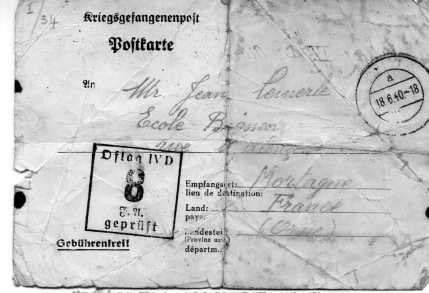 I/34
Kriegsgefangenenpost
Postkarte
An Mr Jean Lemerle
Ecole
a
18.6.40-18
Oflag IV D
8
geprüft
Empfangsort: Mortagne
lieu de destination:
Land: France
pays:
Landesteil (Orne)
(Provinz usw.)
départm.:
Gebührenfrei!